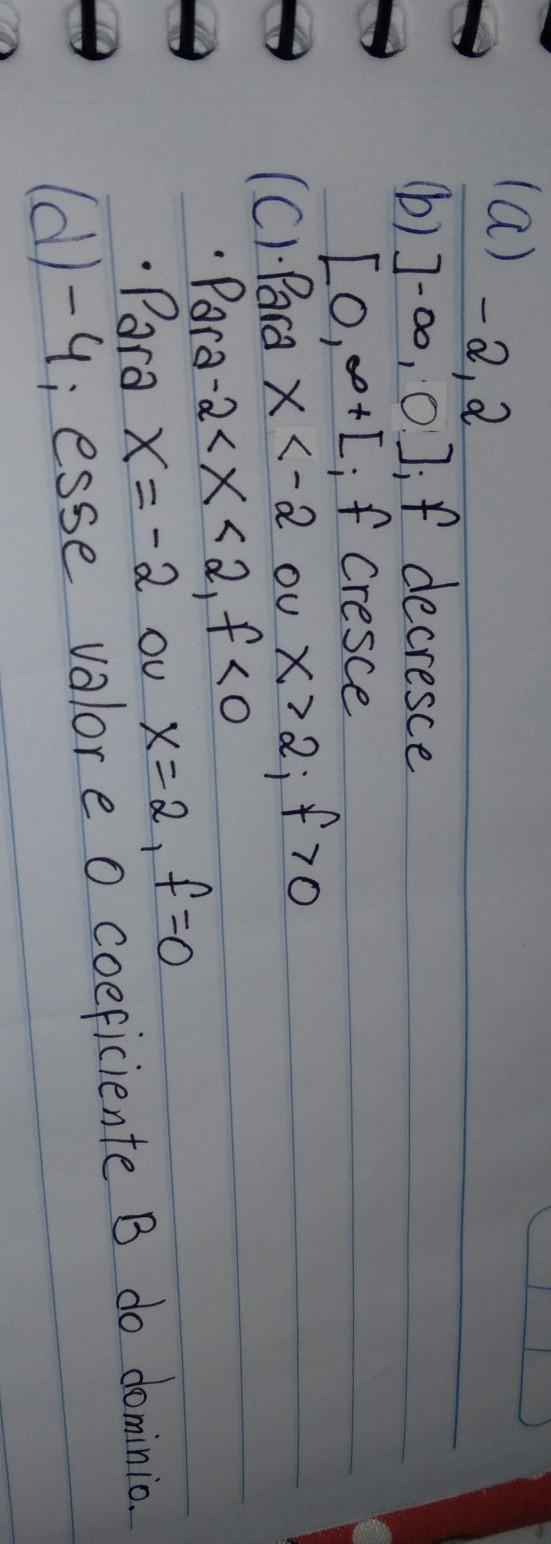 (a) -2,2
(b) ]-∞, 0]; f decresce
[0, ∞+[; f cresce
(c)·Para x <-2 ou x>2; f>0
·Para -2<x<2, f<0
·Para x=-2 ou x=2, f=0
(d) -4; esse valor e o coeficiente B do dominio.